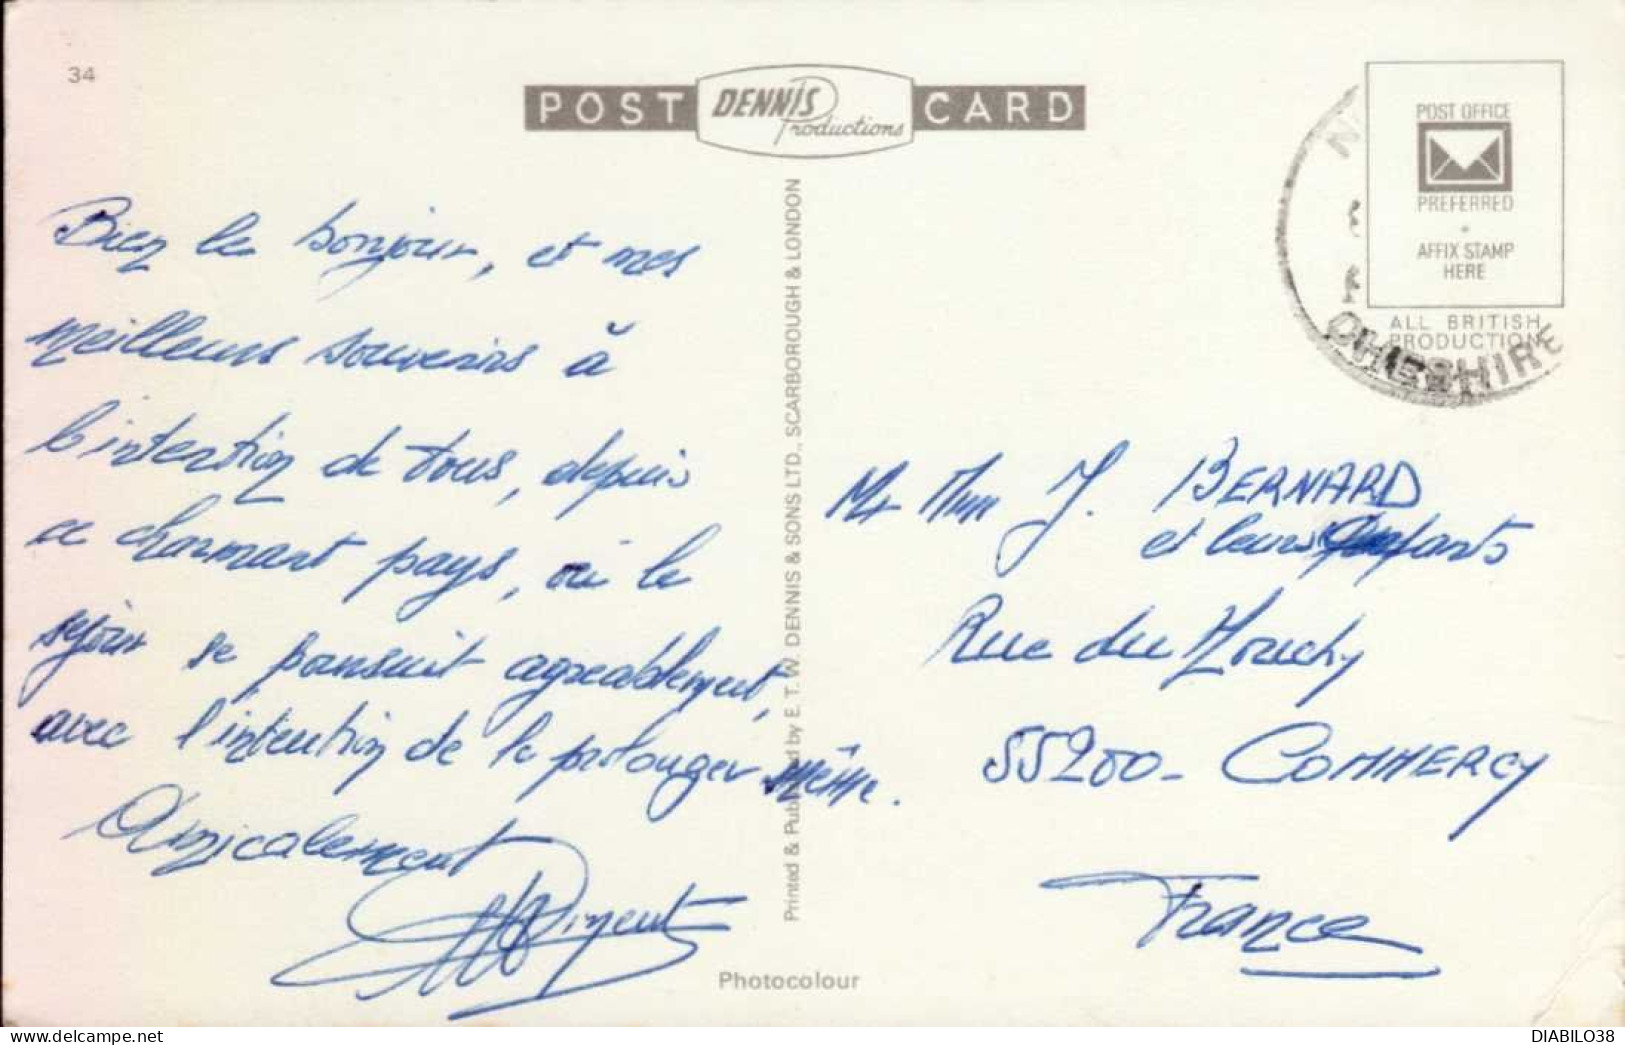 34
POST DENNIS Productions CARD
POST OFFICE
PREFERRED
AFFIX STAMP
HERE
ALL BRITISH
PRODUCTION
CHESHIRE
Bien le bonjour, et mes
meilleurs souvenirs à
l'intention de tous, depuis
ce charmant pays, où le
séjour se poursuit agreablement,
avec l'intention de le prolonger même.
Amicalement
Printed & Published by E. T. W. DENNIS & SONS LTD., SCARBOROUGH & LONDON
Mr Mme J. BERNARD
et leurs enfants
Rue du
55200 - COMMERCY
France
Photocolour
DIABILO38